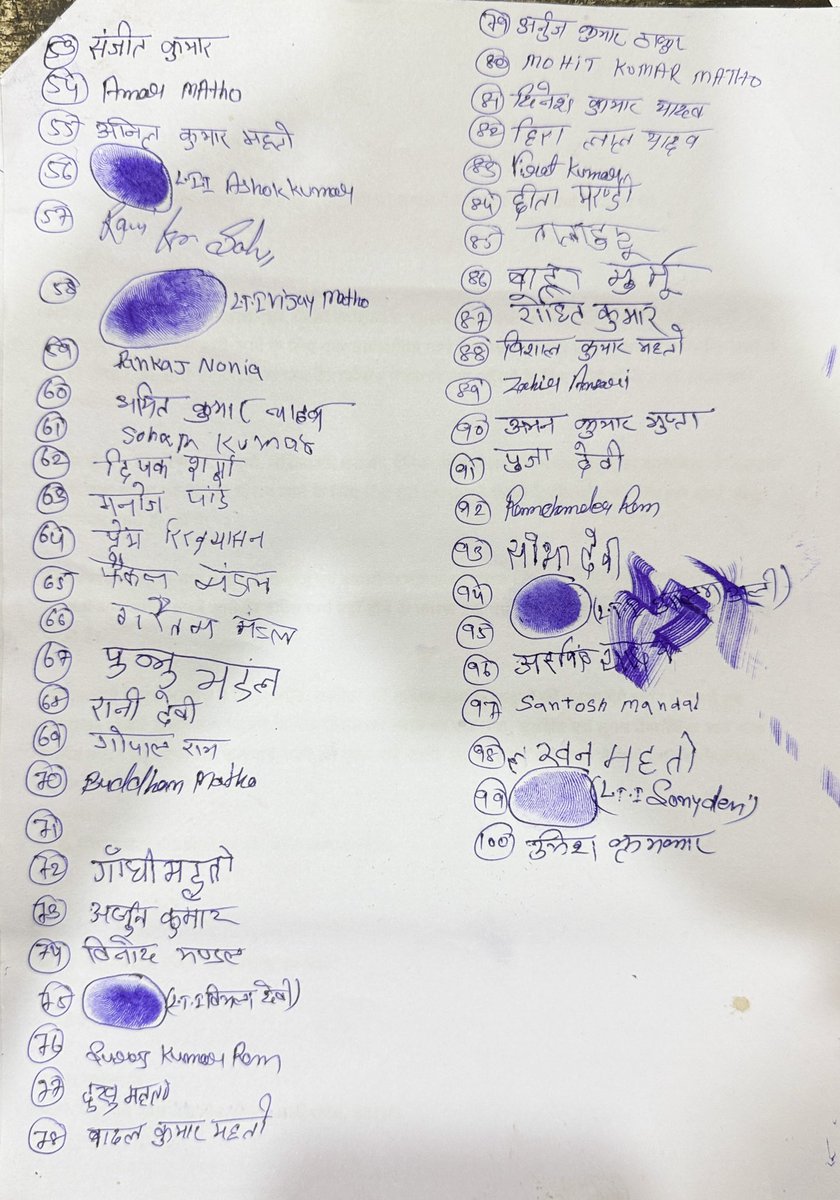 53 संजीत कुमार
54 Amar MAtho
55 अनिल कुमार महतो
56 L.T.I Ashok Kumar
57 Ram
58 L.T.I Vijay Matho
59 Pankaj Nonia
60 अमित कुमार यादव
61 Soham KUMAR
62 दिपक शर्मा
63 मनोज पांडे
64 प्रेम
65 मंडल
66 मंडल
67 पुन्नु मडंल
68 रानी देवी
69 गोपाल राम
70 Buddham Matho
71
72 गाँधी महतो
73 अर्जुन कुमार
74 विनोद मण्डल
75 (L.T.I विमला देवी)
76 Suraj Kumar Ram
77 दुखु महतो
78 बादल कुमार महतो
79 अर्नुज कुमार ठाकुर
80 MOHIT KUMAR MATHO
81 दिनेश कुमार यादव
82 हिरा लाल यादव
83 Kumar
84 छीता मरण्डी
85
86 बाहा मुर्मू
87 रोहित कुमार
88 विशाल कुमार महतो
89 Zakir Ansari
90 अमन कुमार गुप्ता
91 पुजा देवी
92 Ram
93 सोभा देवी
94 (L.T.I
95
96 अरविंद
97 Santosh mandal
98 लखन महतो
99 (L.T.I Sonydevi)
100